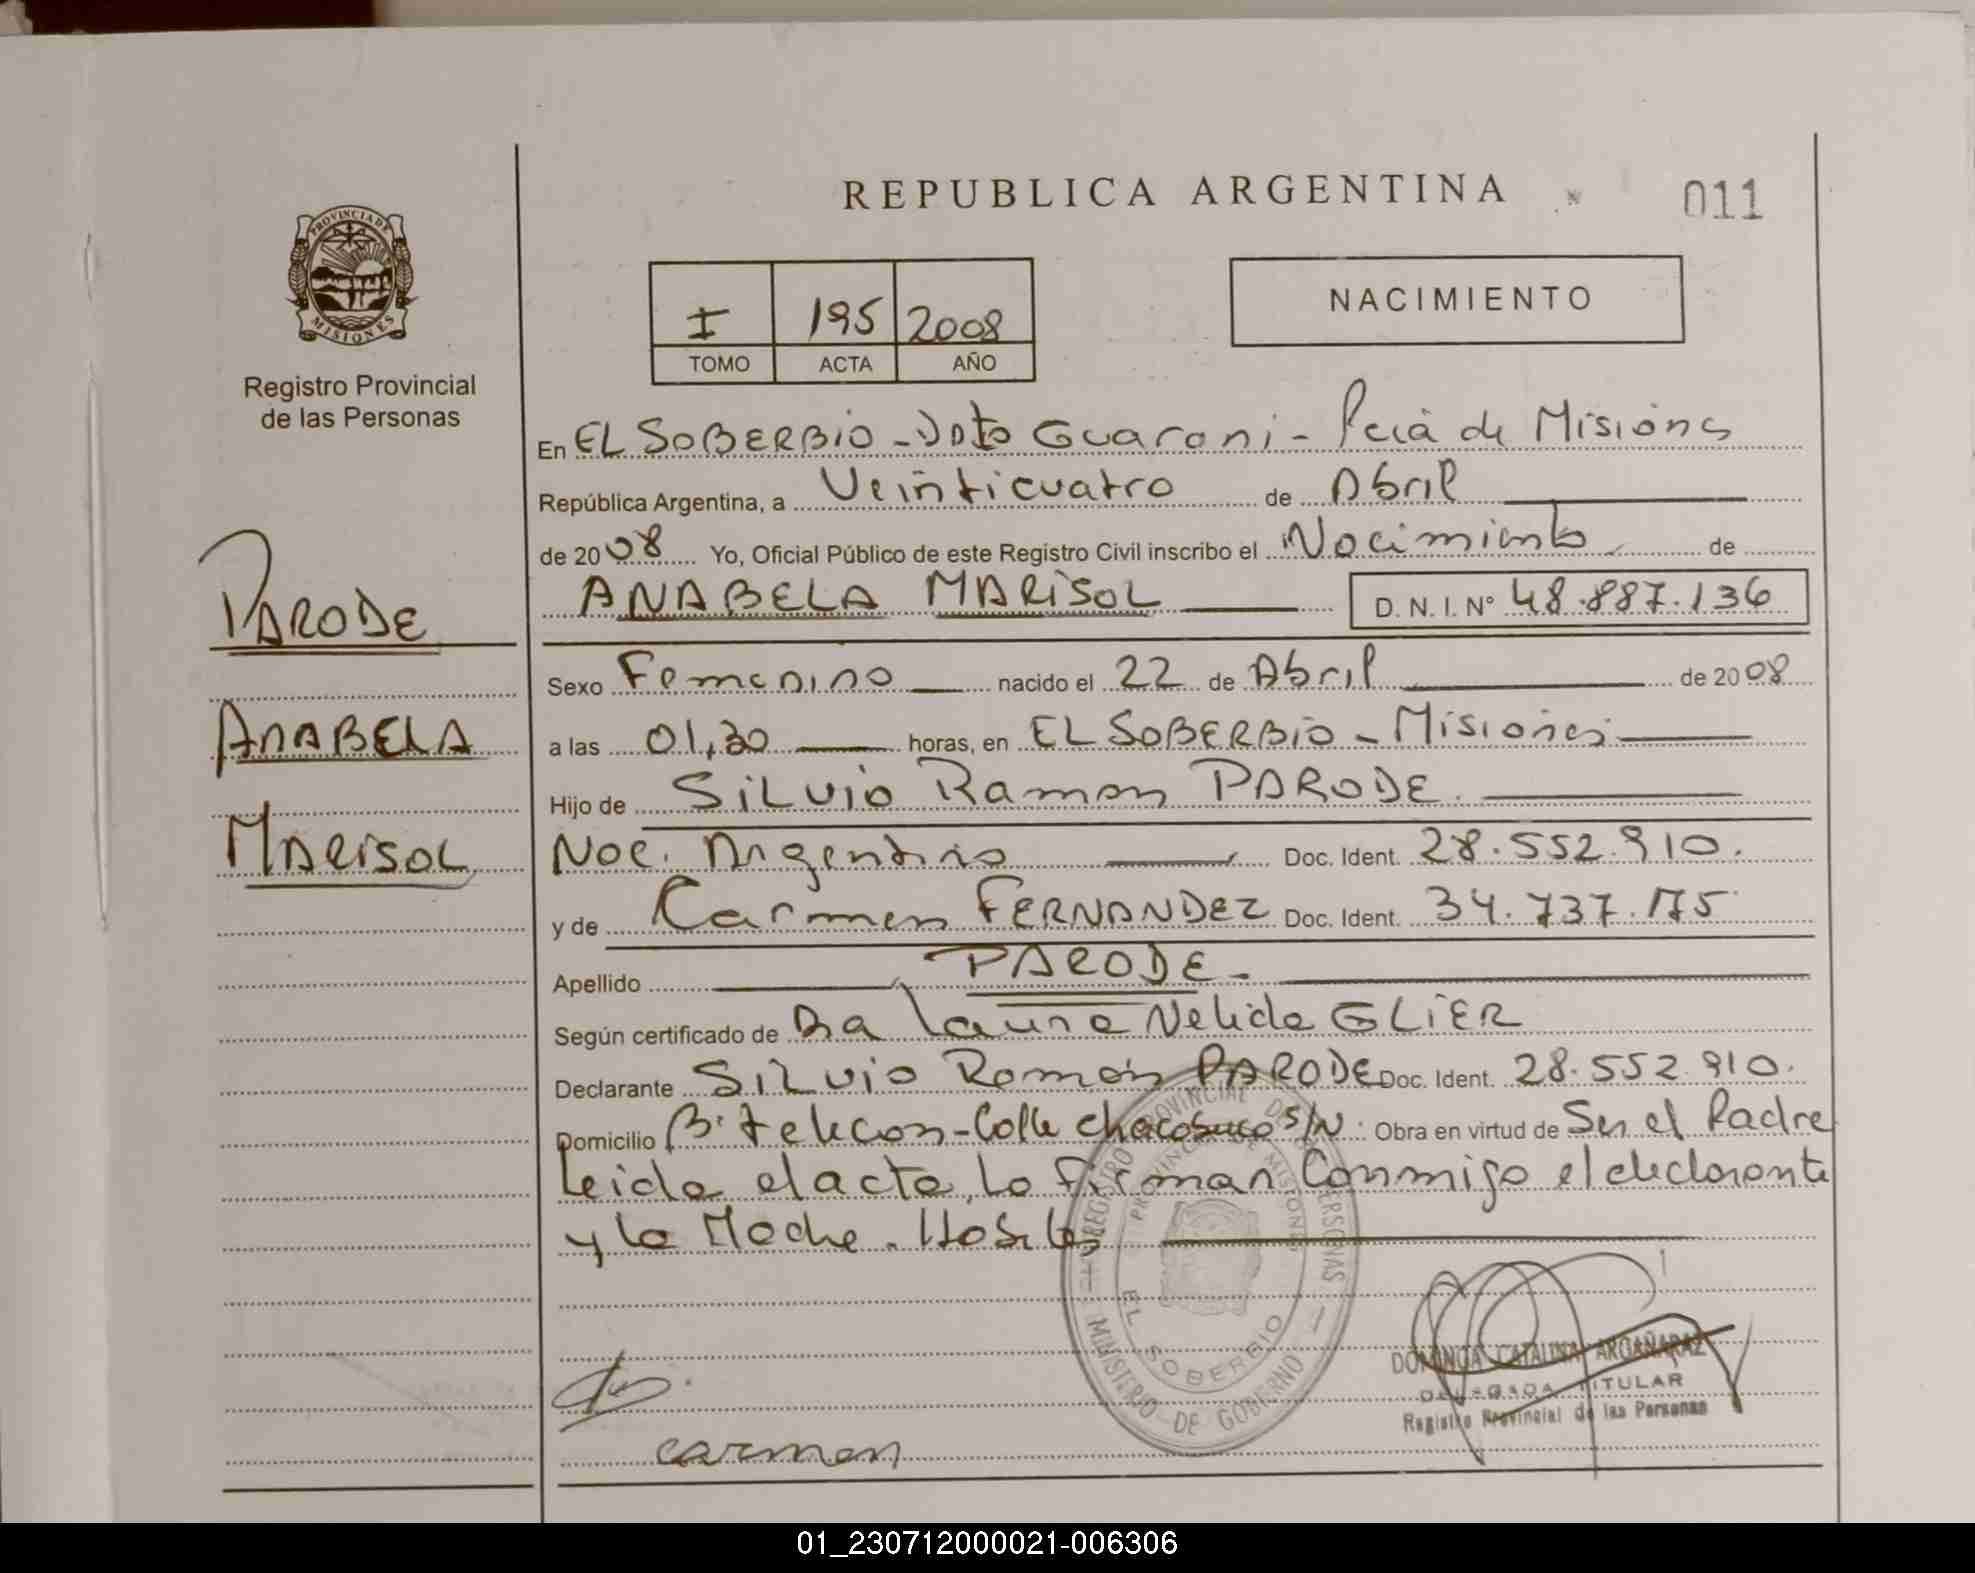 REPUBLICA ARGENTINA
011
PROVINCIA DE
MISIONES
Registro Provincial
de las Personas
I 195 2008
TOMO ACTA AÑO
NACIMIENTO
En EL SOBERBIO - Dpto Guarani - Pcia de Misiones
República Argentina, a Veinticuatro de Abril
de 2008 Yo, Oficial Público de este Registro Civil inscribo el Nacimiento de
ANABELA MARISOL D.N.I. Nº 48.887.136
PARODE
ANABELA
MARISOL
Sexo Femenino nacido el 22 de Abril de 2008
a las 01,30 horas, en EL SOBERBIO - Misiones
Hijo de SILVIO Ramon PARODE
Nac. Argentino Doc. Ident. 28.552.910.
y de Carmen FERNANDEZ Doc. Ident. 34.737.175
Apellido PARODE
Según certificado de Dra Laura Nelida GLIER
Declarante SILVIO Ramón PARODE Doc. Ident. 28.552.910.
Domicilio Bº Telecon - Calle S/N. Obra en virtud de Ser el Padre
Leida el acta, la firman Conmigo el declarante
y la Madre.
REGISTRO PROVINCIAL DE LAS PERSONAS
MINISTERIO DE GOBIERNO
PROVINCIA DE MISIONES
EL SOBERBIO
DOMINGA CATALINA ARGAÑARAZ
DELEGADA TITULAR
Registro Provincial de las Personas
carmen
01_230712000021-006306